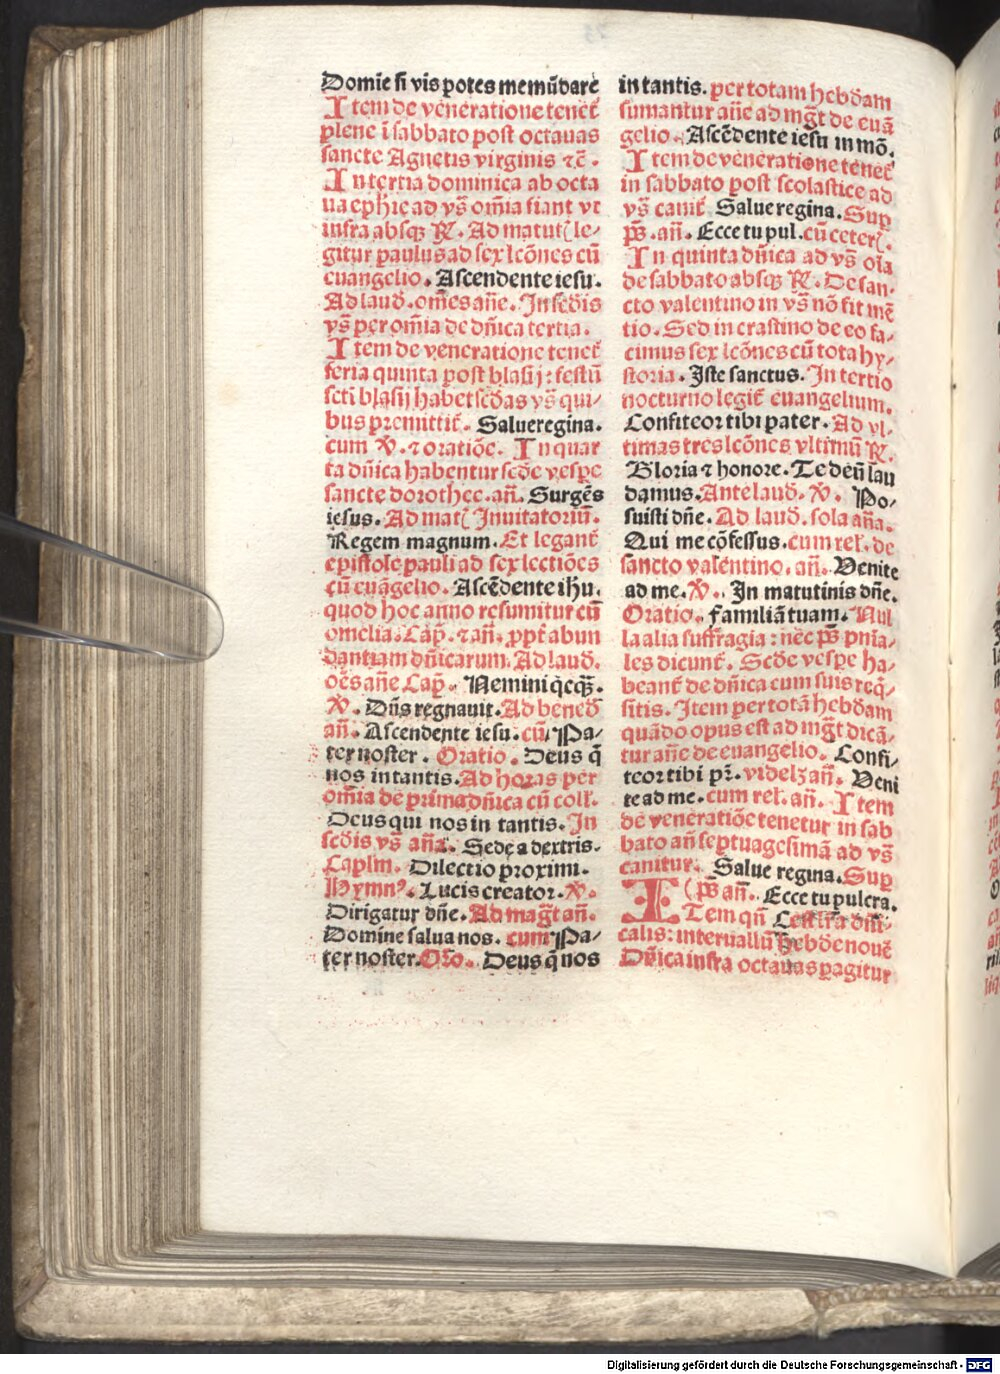 Domie si vis potes me mūdare
Item de veneratione tenet᷑
plene ī sabbato post octauas
sancte Agnetis virginis ⁊c̄.
In tertia dominica ab octa
ua eph̄ie ad vs̄ om̄ia fiant vt
infra absqꝫ ℟. Ad matut̄ le⸗
gitur paulus ad sex lc̄ōnes cū
euangelio. Ascendente iesu.
Ad laud̄. om̄es an̄e. In sc̄dis
vs̄ per om̄ia de dn̄ica tertia.
Item de veneratione tenet᷑
feria quinta post blasij: festū
scti blasij habet sc̄das vs̄ qui⸗
bus premittit᷑. Salue regina.
cum ℣. ⁊ oratiōe. In quar
ta dn̄ica habentur sc̄de vespe
sancte dorothee. an̄. Surgēs
iesus. Ad mat̄ Inuitatoriū.
Regem magnum. Et legant᷑
epistole pauli ad sex lectiōes
cū euāgelio. Ascēdente ihu.
quod hoc anno resumitur cū
omelia. Cap̄. ⁊ an̄. ꝓpt̄ abun
dantiam dn̄icarum. Ad laud̄.
oēs an̄e Cap̄. Nemini q̄cqꝫ.
℣. Dn̄s regnauit. Ad bened̄
an̄. Ascendente iesu. cū Pa⸗
ter noster. Oratio. Deus q̄
nos in tantis. Ad horas per
om̄ia de prima dn̄ica cū coll̄.
Deus qui nos in tantis. In
sc̄dis vs̄ an̄a. Sede a dextris.
Caplm. Dilectio proximi.
Hymnꝰ. Lucis creator. ℣.
Dirigatur dn̄e. Ad magt̄ an̄.
Domine salua nos. cum Pa⸗
ter noster. Or̄o. Deus q̄ nos
in tantis. per totam hebd̄am
sumantur an̄e ad mgt̄ de euā
gelio. Ascēdente iesu in mō.
Item de veneratione tenet᷑
in sabbato post scolastice ad
vs̄ canit᷑ Salue regina. Sup
ps̄. an̄. Ecce tu pul. cū ceter̄.
In quinta dn̄ica ad vs̄ oīa
de sabbato absqꝫ ℟. De san⸗
cto valentino in vs̄ nō fit mē
tio. Sed in crastino de eo fa⸗
cimus sex lc̄ōnes cū tota hy⸗
storia. Iste sanctus. In tertio
nocturno legit᷑ euangelium.
Confiteor tibi pater. Ad vl⸗
timas tres lc̄ōnes vltimū ℟.
Gloria ⁊ honore. Te deū lau
damus. Ante laud̄. ℣. Po⸗
suisti dn̄e. Ad laud̄. sola an̄a.
Qui me cōfessus. cum rel̄. de
sancto valentino. an̄. Venite
ad me. ℣. In matutinis dn̄e.
Oratio. Familiā tuam. Nul
la alia suffragia: nec ps̄ pn̄ia⸗
les dicunt᷑. Sc̄de vespe ha⸗
beant᷑ de dn̄ica cum suis req̄⸗
sitis. Item per totā hebd̄am
quādo opus est ad mgt̄ dicā⸗
tur an̄e de euangelio. Confi⸗
teor tibi pr̄. videlꝫ an̄. Veni
te ad me. cum rel̄. an̄. Item
de veneratiōe tenetur in sab
bato an̄ septuagesimā ad vs̄
canitur. Salue regina. Sup
ps̄ an̄. Ecce tu pulcra.
ITem qn̄ dn̄i⸗
calis: interuallū hebd̄e nouē
Dn̄ica infra octauas pagitur
Digitalisierung gefördert durch die Deutsche Forschungsgemeinschaft - DFG